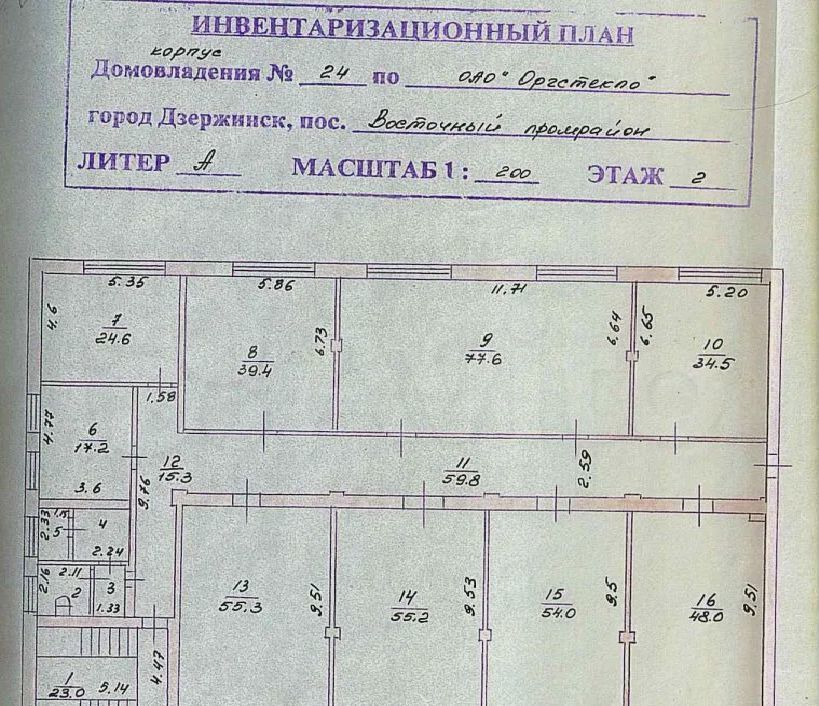 ИНВЕНТАРИЗАЦИОННЫЙ ПЛАН
корпус
Домовладения № 24 по ОАО "Оргстекло"
город Дзержинск, пос. Восточный промрайон
ЛИТЕР А МАСШТАБ 1 : 200 ЭТАЖ 2
5.35 5.86 11.71 5.20
4.6 7 24.6
8 39.4 6.73
9 77.6 6.64
6.65 10 34.5
1.58
4.77 6 17.2 3.6
9.76 12 15.3
11 59.8 2.59
2.33 1.15 5 4 2.24
2.16 2.11 2 3 1.33
13 55.3 9.51
14 55.2 9.53
15 54.0 9.5
16 48.0 9.51
1 23.0 5.14 4.47